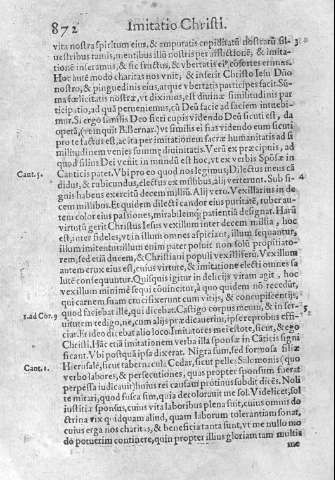 872 Imitatio Christi.
vita nostra spiritum eius, & amputatis cupiditatū nostrarū sil- 3
uestribus ramis, mentibus illiù nostris per afflictionē, & imita-
tionē inseramus, & sic fructus, & vbertatis ei cōsortes erimus.
Hoc autē modo charitas nos vnit, & inserit Christo Iesu Dño
nostro, & pinguedinis eius, atque vbertatis participes facit. Sū-
ma fœlicitatis nostræ, vt diximus, est diuinæ similitudinis par
ticipatio, ad quā pertinemus, cū Deū facie ad faciem intuebi-
mur. Si ergo similis Deo fieri cupis videndo Deū sicuti est, da
operā, (vt inquit B. Bernar.) vt similis ei fias videndo eum sicuti
pro te factus est, ac ita per imitationem sacræ humanitatis ad si
militudinem venies summę diuinitatis. Verū ex præcipuis, ad
quod filius Dei venit in mundū est hoc, vt ex verbis Sposæ in
Cant. 5. Canticis patet. Vbi pro eo quod nos legimus, Dilectus meus cā
didus, & rubicundus, electus ex millibus, alij verterunt. Sub si- 4
gnis habens exercitū decem milliū. Alij vero. Vexillarius in de
cem millibus. Et quidem dilecti candor eius puritatē, ruberau-
tem color eius passiones, mirabilemq; patientiā designat. Harū
virtutū gerit Christus Iesus vexillum inter decem millia, hoc
est, inter fideles, vt in illum omnes aspiciāt, illum sequantur,
illum imitentur. Illum enim pater posuit non solū propitiato-
rem, sed etiā ducem, & Christiani populi vexilliferū. Vexillum
autem crux eius est, cuius virtute, & imitatione electi omnes sa
lutē consequuntur. Quisquis igitur in delicijs vitam agit, hoc
vexillum minimè sequi conuincitur, à quo quidem nō recedūt,
qui carnem suam crucifixerunt cum vitijs, & concupiscentijs,
quod faciebat ille, qui dicebat. Castigo corpus meum, & in ser- 5
1. ad Cor. 9 uitutem redigo, ne, cum alijs prædicauerim, ipse reprobus effi-
ciar. Et ideo dicebat alio loco. Imitatores mei estote, sicut, & ego
Christi. Hāc etiā imitationem verba illa sposæ in Cāticis signi
Cant. 1. ficant. Vbi postquā ipsa dixerat. Nigra sum, sed formosa filiæ
Hierusalē, sicut tabernacula Cedar, sicut pelles Salomonis (quo
verbo labores, & persecutiones, quas propter sponsum fuerat
perpessa iudicauit) huius rei causam protinus subdit dicēs. Noli
te mirari, quod fusca sim, quia decolorauit me sol. Videlicet, sol
iustitiæ sponsus, cuius vita laboribus plena fuit, cuius omnis do
ctrina vix quidquam aliud, quam laborum tolerantiam sonat,
cuius erga nos charitas, & beneficia tanta sunt, vt me nullo mo
do potuerim continere, quin propter illius gloriam tam multis
me